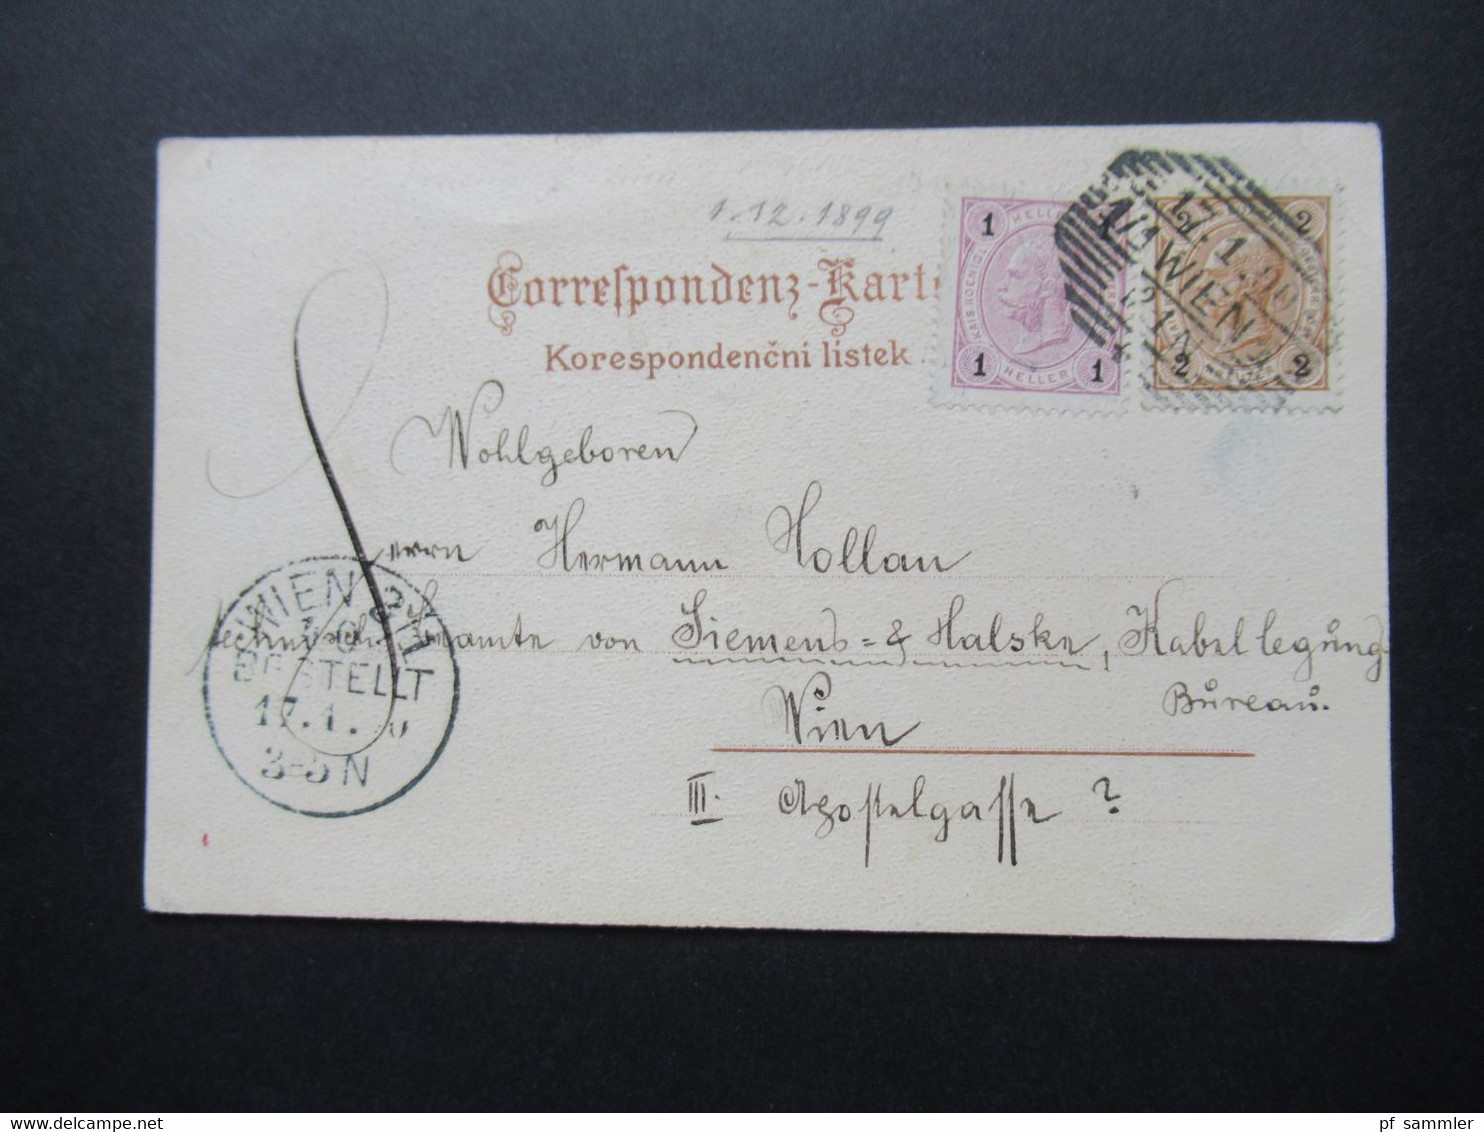 1.12.1899
Correspondenz-Karte
Korespondenční lístek
1 HELLER 1
KAIS. KOENIGL.
1 HELLER 1
2 2
2 KREUZER 2
1/1 WIEN
Wohlgeboren
Herrn Hermann Hollan
technischer Beamte von Siemens- & Halske, Kabellegung-
Bureau.
Wien
III. Apostelgasse ?
WIEN
BESTELLT
17.1.
3-5 N
pf sammler
delcampe.net